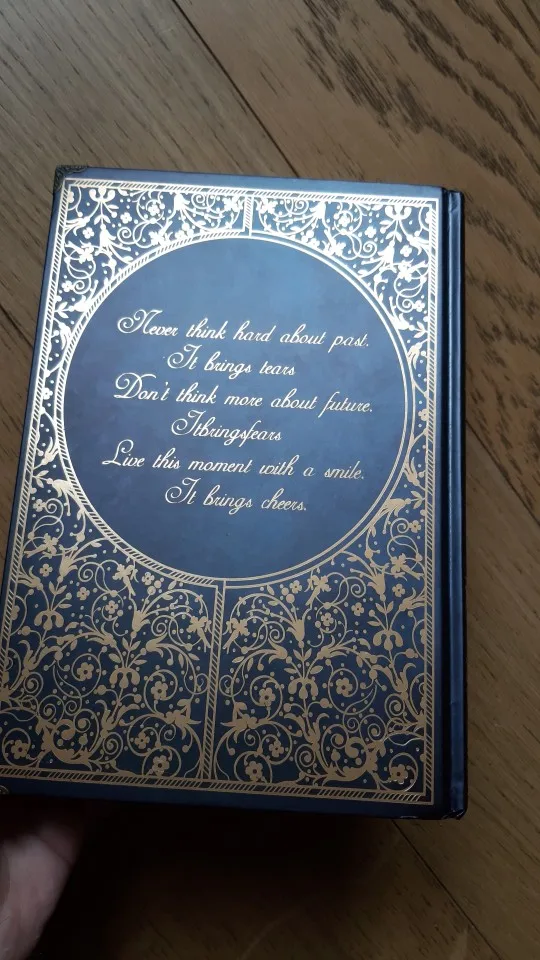 Never think hard about past.
It brings tears
Don't think more about future.
Itbringsfears
Live this moment with a smile.
It brings cheers.